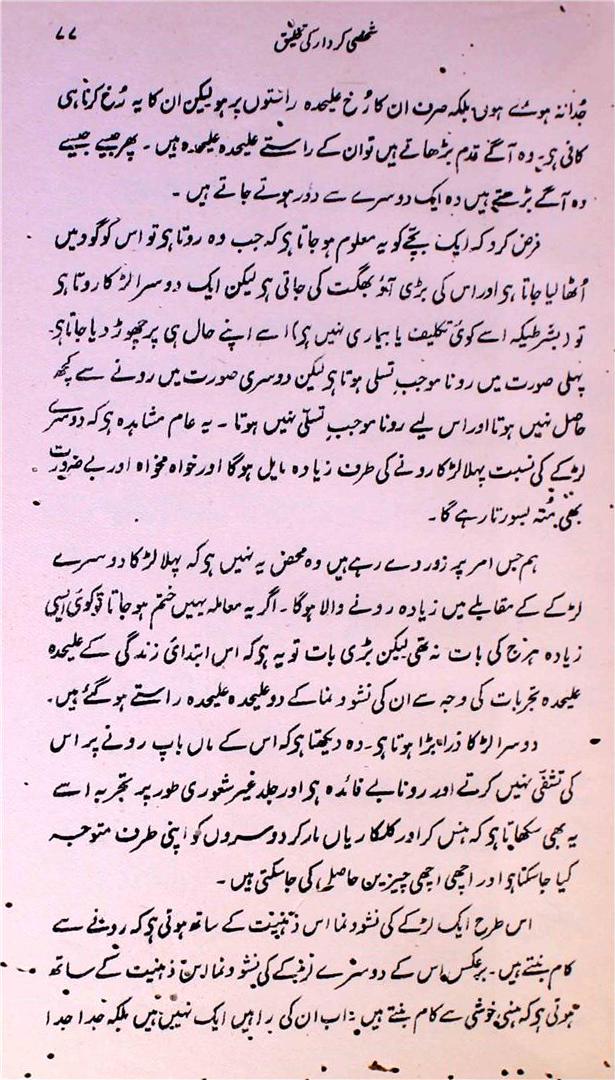 شخصی کردار کی تخلیق ۷۷
جُدا نہ ہوئے ہوں بلکہ صرف ان کا رُخ علیحدہ راستوں پر ہو لیکن ان کا یہ رُخ کرنا ہی
کافی ہی۔ وہ آگے قدم بڑھاتے ہیں تو ان کے راستے علیحدہ علیحدہ ہیں۔ پھر جیسے جیسے
وہ آگے بڑھتے ہیں وہ ایک دوسرے سے دور ہوتے جاتے ہیں۔
فرض کرو کہ ایک بچے کو یہ معلوم ہو جاتا ہی کہ جب وہ روتا ہی تو اس کو گود میں
اُٹھا لیا جاتا ہی اور اس کی بڑی آؤ بھگت کی جاتی ہی لیکن ایک دوسرا لڑکا روتا ہی
تو (بشرطیکہ اسے کوئی تکلیف یا بیماری نہیں ہی) اسے اپنے حال ہی پر چھوڑ دیا جاتا ہی۔
پہلی صورت میں رونا موجب تسلی ہوتا ہی لیکن دوسری صورت میں رونے سے کچھ
حاصل نہیں ہوتا اور اس لیے رونا موجبِ تسلّی نہیں ہوتا۔ یہ عام مشاہدہ ہی کہ دوسرے
لڑکے کی نسبت پہلا لڑکا رونے کی طرف زیادہ مایل ہوگا اور خواہ مخواہ اور بے ضرورت
بھی مُنہ بسورتا رہے گا۔
ہم جس امر پر زور دے رہے ہیں وہ محض یہ نہیں ہی کہ پہلا لڑکا دوسرے
لڑکے کے مقابلے میں زیادہ رونے والا ہوگا۔ اگر یہ معاملہ یہیں ختم ہو جاتا تو کوئی ایسی
زیادہ ہرج کی بات نہ تھی لیکن بڑی بات تو یہ ہی کہ اس ابتدائی زندگی کے علیحدہ
علیحدہ تجربات کی وجہ سے ان کی نشو و نما کے دو علیحدہ علیحدہ راستے ہو گئے ہیں۔
دوسرا لڑکا ذرا بڑا ہوتا ہی۔ وہ دیکھتا ہی کہ اس کے ماں باپ رونے پر اس
کی تشفّی نہیں کرتے اور رونا بے فائدہ ہی اور جلد غیر شعوری طور پر تجربہ اسے
یہ بھی سکھاتا ہی کہ ہنس کر اور کلکاریاں مار کر دوسروں کو اپنی طرف متوجہ
کیا جا سکتا ہی اور اچھی اچھی چیزیں حاصل کی جا سکتی ہیں۔
اس طرح ایک لڑکے کی نشو و نما اس ذہنیت کے ساتھ ہوتی ہی کہ رونے سے
کام بنتے ہیں۔ برعکس اس کے دوسرے لڑکے کی نشو و نما اس ذہنیت کے ساتھ
ہوتی ہی کہ ہنسی خوشی سے کام بنتے ہیں۔ اب ان کی راہیں ایک نہیں ہیں بلکہ جدا جدا